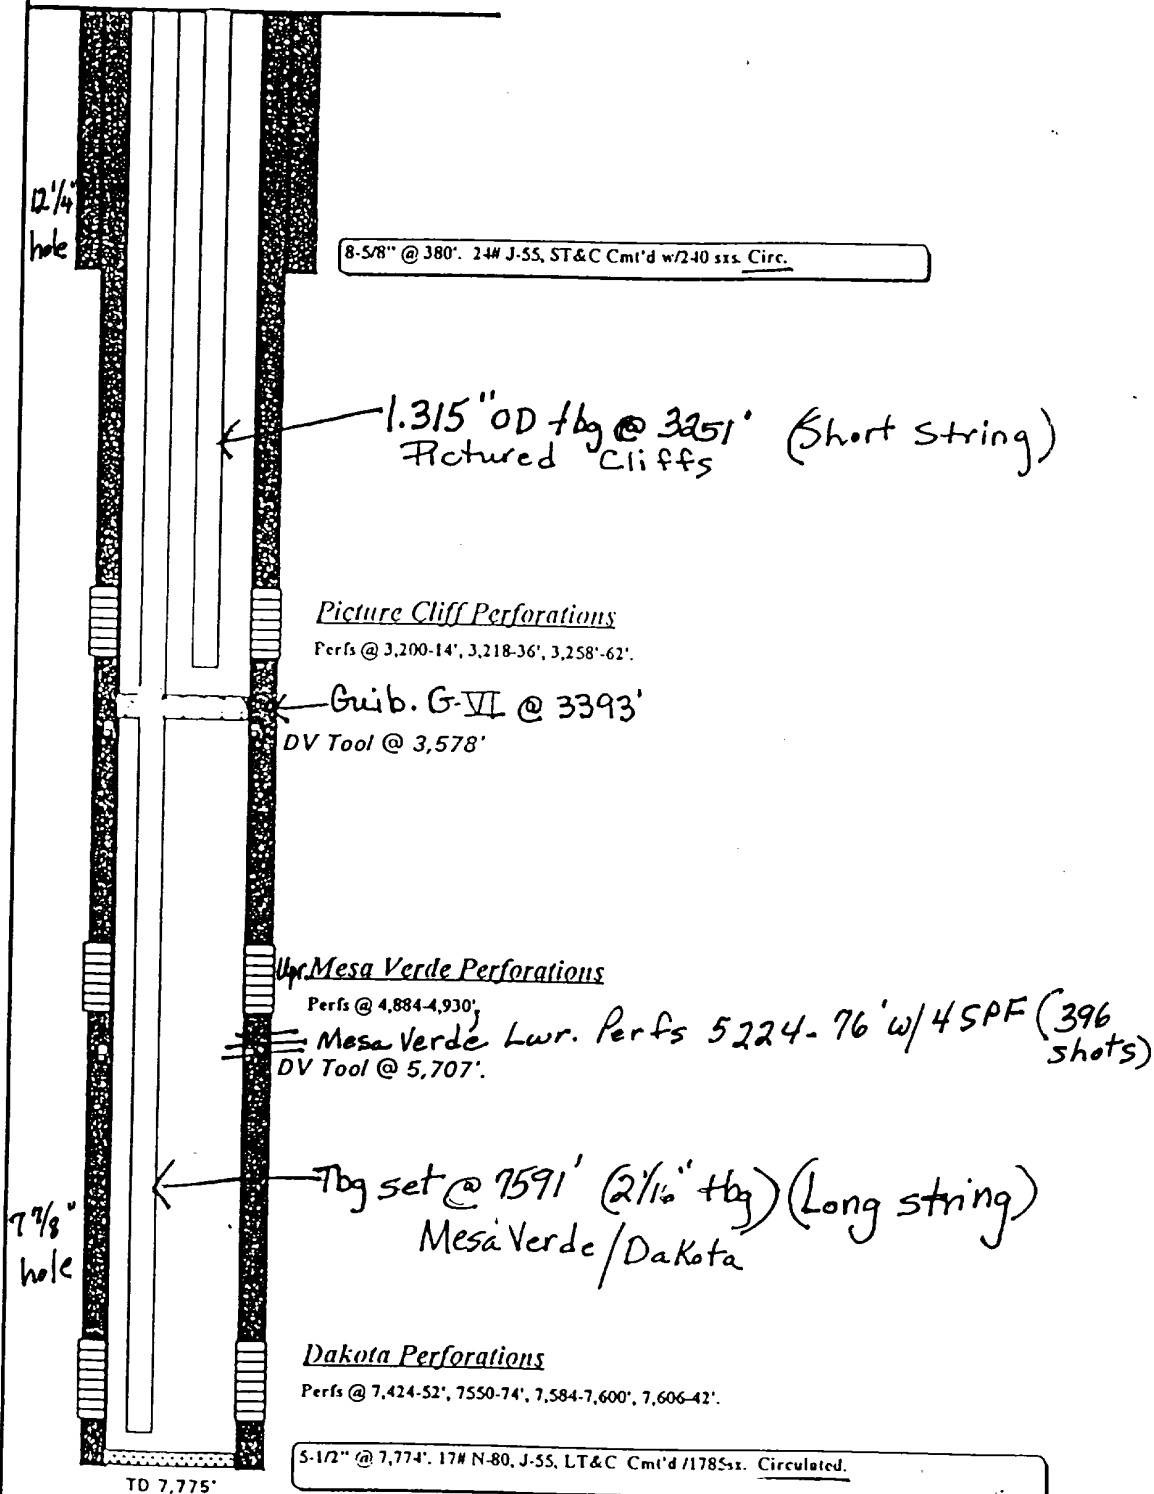 12 1/4"
hole
8-5/8" @ 380'. 24# J-55, ST&C Cmt'd w/240 sxs. Circ.
1.315" OD tbg @ 3251' (Short String)
Pictured Cliffs
Picture Cliff Perforations
Perfs @ 3,200-14', 3,218-36', 3,258'-62'.
Guib. G-VI @ 3393'
DV Tool @ 3,578'
Upr. Mesa Verde Perforations
Perfs @ 4,884-4,930',
Mesa Verde Lwr. Perfs 5224-76' w/ 4 SPF (396
shots)
DV Tool @ 5,707'.
Tbg set @ 7591' (2 1/16" tbg) (Long string)
Mesa Verde/Dakota
7 7/8"
hole
Dakota Perforations
Perfs @ 7,424-52', 7550-74', 7,584-7,600', 7,606-42'.
5-1/2" @ 7,774'. 17# N-80, J-55, LT&C Cmt'd /1785sx. Circulated.
TD 7,775'